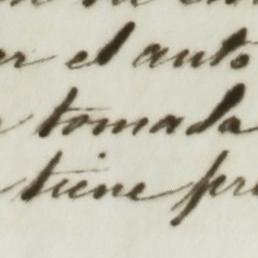 er el auto
tomada
tiene pr